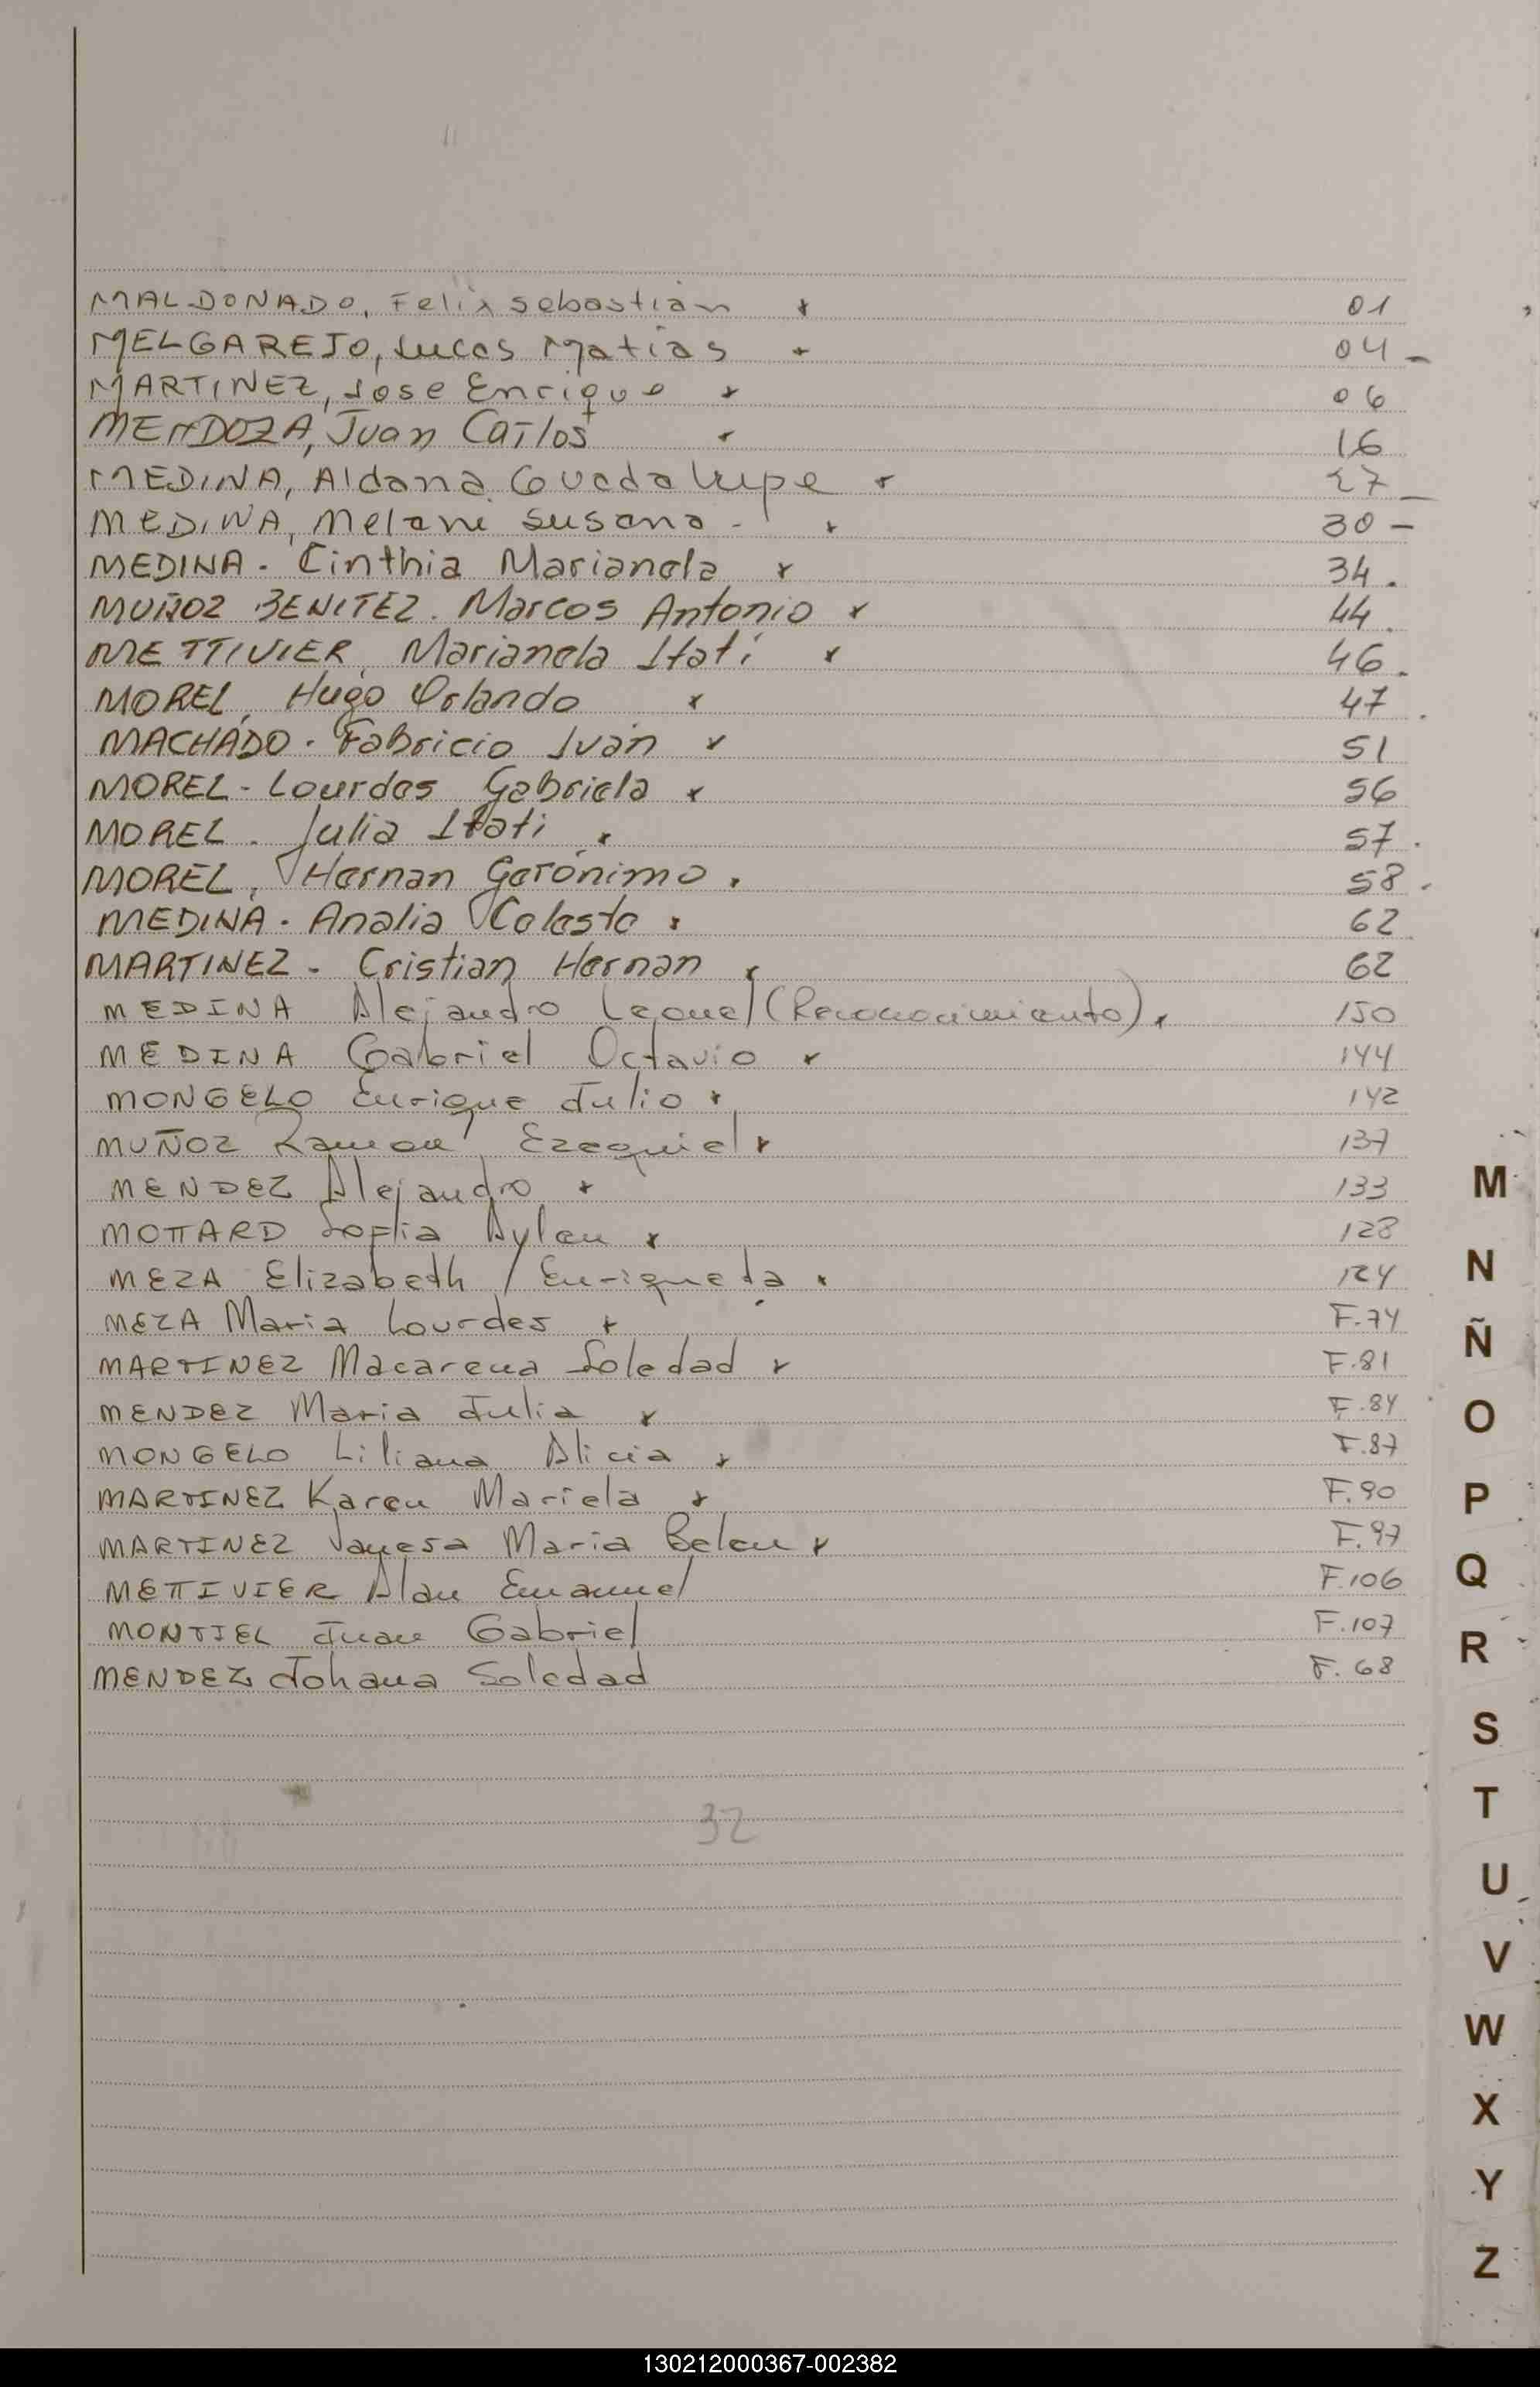 MALDONADO, Felix Sebastián x 01
MELGAREJO, Lucas Matías x 04 -
MARTINEZ, Jose Enrique x 06
MENDOZA, Juan Carlos x 16
MEDINA, Aldana Guadalupe x 27 -
MEDINA, Melani Susana - x 30 -
MEDINA - Cinthia Marianela x 34.
MUÑOZ BENITEZ. Marcos Antonio x 44.
METTIVIER, Marianela Itatí x 46.
MOREL, Hugo Orlando x 47.
MACHADO. Fabricio Iván x 51
MOREL - Lourdes Gabriela x 56
MOREL. Julia Itatí x 57.
MOREL, Hernan Gerónimo x 58.
MEDINA. Analia Celeste x 62
MARTINEZ - Cristian Hernan x 62
MEDINA Alejandro Leonel (Reconocimiento) x 150
MEDINA Gabriel Octavio x 144
MONGELO Enrique Julio x 142
MUÑOZ Ramon Ezequiel x 137
MENDEZ Alejandro x 133
MOTTARD Sofia Aylen x 128
MEZA Elizabeth Enriqueta x 124
MEZA Maria Lourdes x F.74
MARTINEZ Macarena Soledad x F.81
MENDEZ Maria Julia x F.84
MONGELO Liliana Alicia x F.87
MARTINEZ Karen Mariela x F.90
MARTINEZ Vanesa Maria Belen x F.97
METTIVIER Alan Emanuel F.106
MONTIEL Juan Gabriel F.107
MENDEZ Johana Soledad F.68
32
M
N
Ñ
O
P
Q
R
S
T
U
V
W
X
Y
Z
130212000367-002382